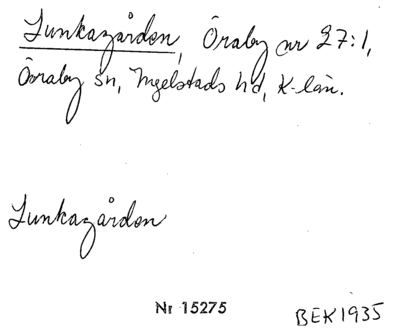 Junkagården, Öraby nr 27:1,
Össraby sn, Ingelstads hd, K-län.
Junkagården
Nr 15275
BEK1935